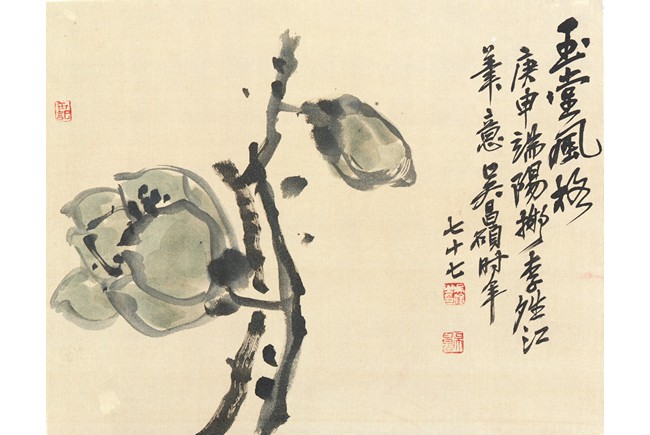 玉堂風格
庚申端陽擬李夝江
筆意吳昌碩时年
七十七